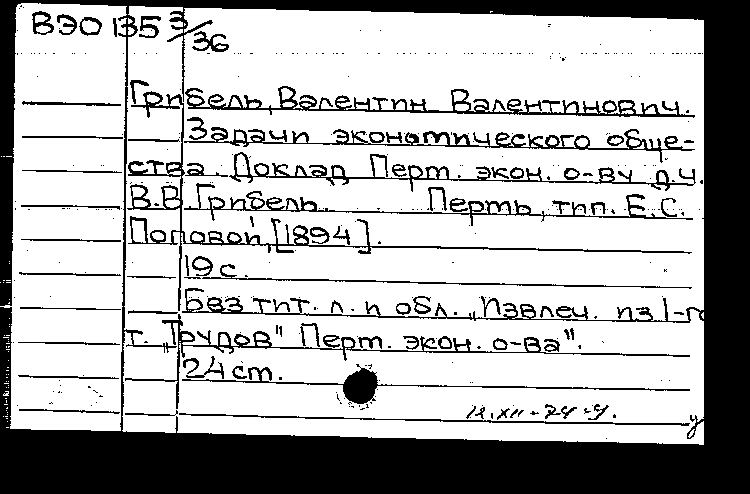 ВЭО 135 3/36
Грибель, Валентин Валентинович.
Задачи экономического обще-
ства. Доклад Перм. экон. о-ву д.ч.
В.В. Грибель. Пермь, тип. Е.С.
Поповой, [1894].
19 с.
Без тит. л. и обл. „Извлеч. из 1-го
т. „Трудов" Перм. экон. о-ва".
24 см.